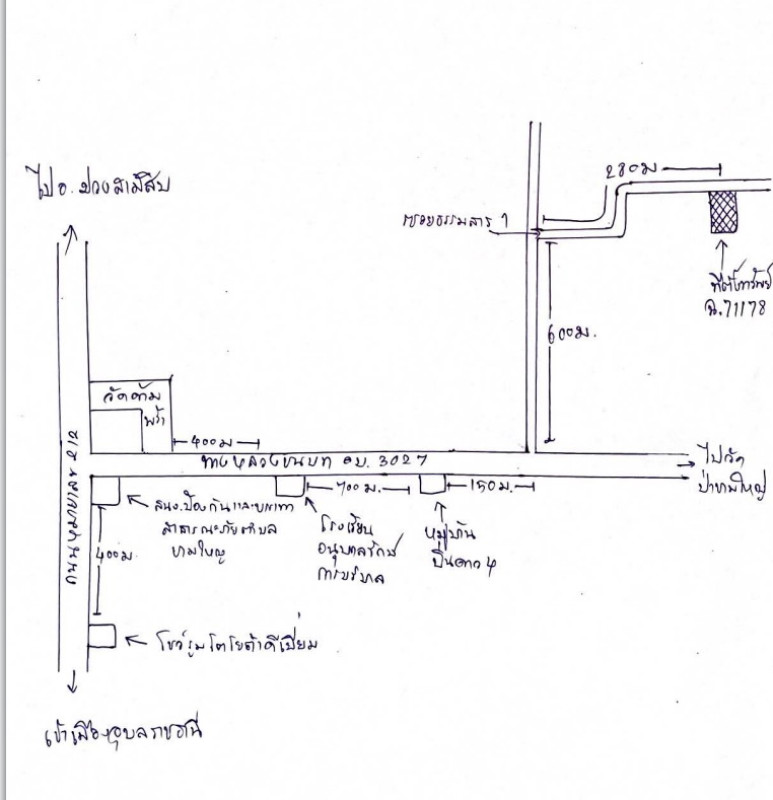 ไป อ.ม่วงสามสิบ
280ม
ซอยธรรมสาร 1
ที่ตั้งทรัพย์
ฉ.71178
600ม.
วัดด้าม
พร้า
400ม
ทางหลวงชนบท อบ. 3027
ไปวัด
ป่าขามใหญ่
ถนนหมายเลข 212
สนง.ป้องกันและบรรเทา
สาธารณะภัยตำบล
ขามใหญ่
700ม.
150ม.
โรงเรียน
อนุบาลรักษ์
การบริบาล
หมู่บ้าน
ปิ่นดาว 4
400ม.
โชว์รูมโตโยต้าดีเยี่ยม
เข้าเมืองอุบลราชธานี